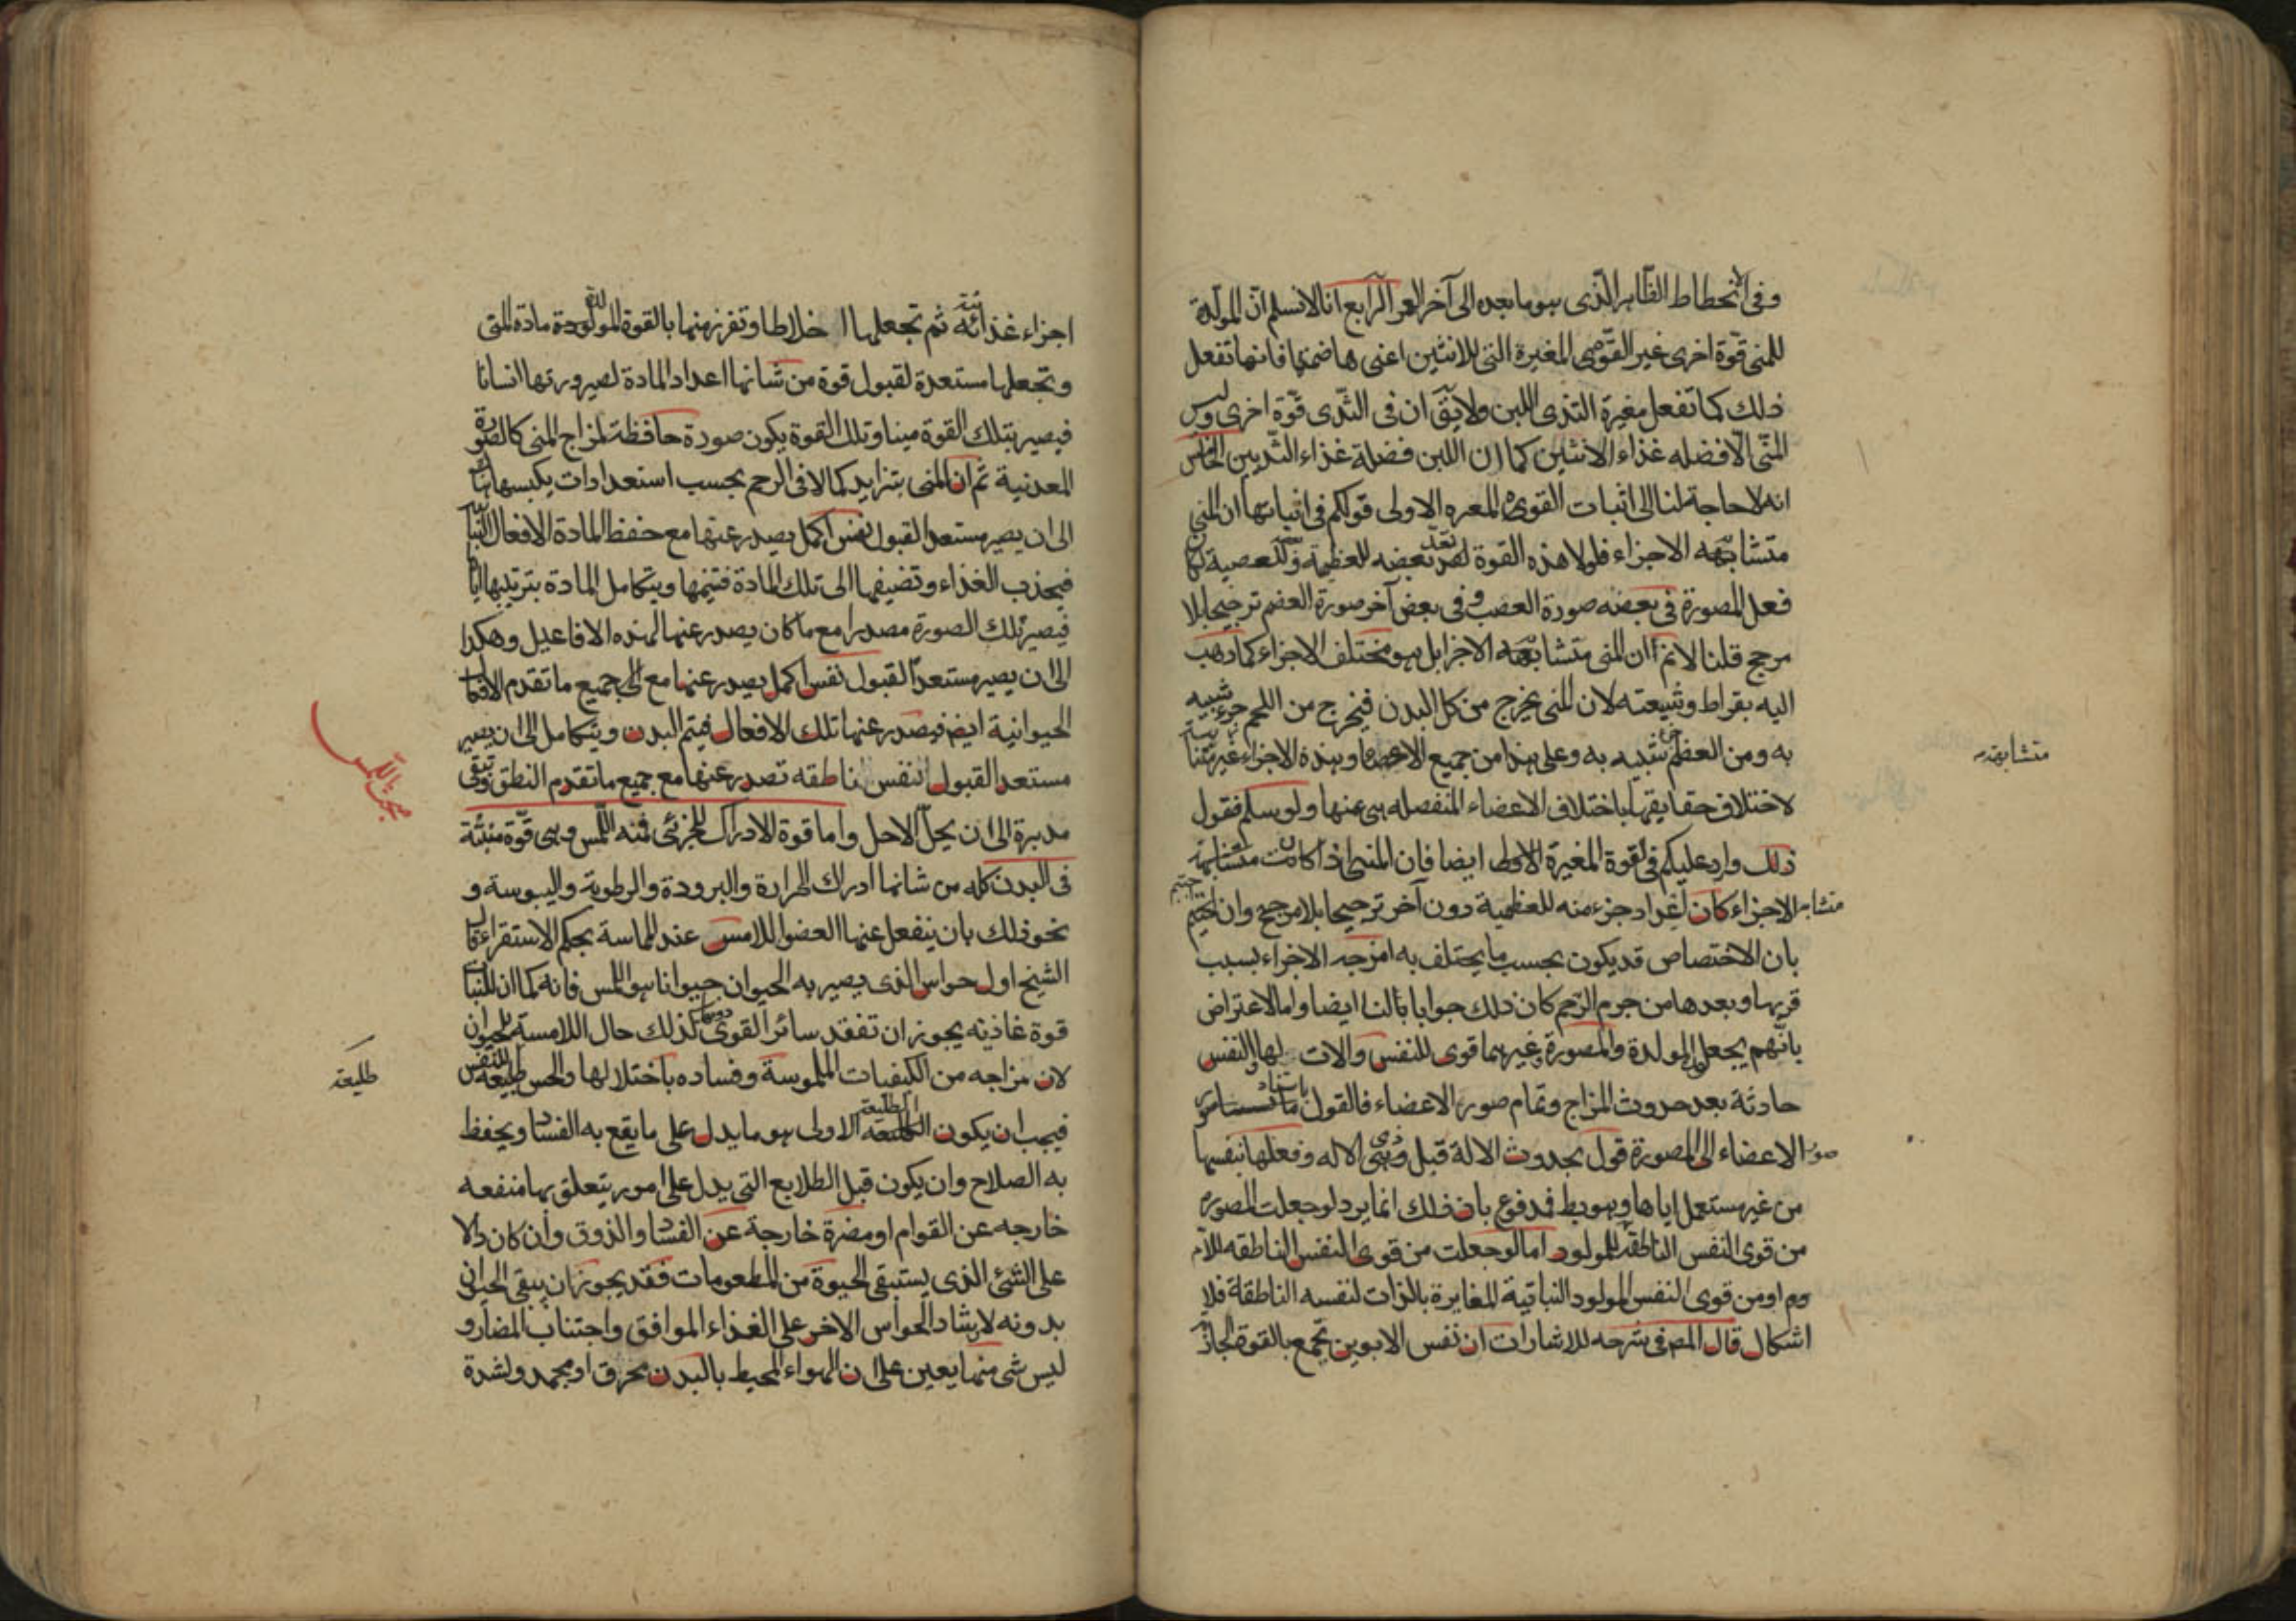 وفى الانحطاط الظاهر الذى هو ما بعده الى آخر العمر الرابع انا لا نسلم ان المولدة
للمنى قوة اخرى غير القوى المغيرة التى للانثيين اعنى هاضمتها فانها تفعل
ذلك كما تفعل مغيرة الثدى اللبن ولا يق ان فى الثدى قوة اخرى وليس
المنى الا فضله غذاء الانثيين كما ان اللبن فضلة غذاء الثديين الخامس
انه لا حاجة لنا الى اثبات القوى المغيره الاولى قولكم فى اثباتها ان المنى
متشابهه الاجزاء فلولا هذه القوة بعضه للعظمية وللعصبية لكان
فعل المصورة فى بعضه صورة العصب وفى بعض آخر صورة العضم ترجيحا بلا
مرجح قلنا لانم ان المنى متشابهه الاجزا بل هو مختلف الاجزاء كما ذهب
اليه بقراط وشيعته لان المنى يخرج من كل البدن فيخرج من اللحم جزء شبيه
به ومن العظم شبيه به وعلى هذا من جميع الاعضاء وهذه الاجزاء غير متشابهة
متشابهة
لاختلاف حقايقها باختلاف الاعضاء المنفصله هى عنها ولو سلم فنقول
ذلك وارد عليكم فى القوة المغيرة الاولى ايضا فان المنى اذا كانت متشابهة
متشابه الاجزاء كان اعداد جزء منه للعظمية دون آخر ترجيحا بلا مرجح وان اجبتم
بان الاختصاص قد يكون بحسب ما يختلف به امزجه الاجزاء بسبب
قربها وبعدها من جرم الرحم كان ذلك جوابا بالنا ايضا واما الاعتراض
بانهم يجعل المولدة والمصورة وغيرهما قوى للنفس والات لها والنفس
حادثة بعد حدوث المزاج وتمام صور الاعضاء فالقول باستناد
صور الاعضاء الى المصورة قول بحدوث الالة قبل ذى الاله وفعلها بنفسها
من غير مستعمل اياها وهو بط فمدفوع بان ذلك انما يرد لو جعلت المصورة
من قوى النفس الناطقه للمولود اما لو جعلت من قوى النفس الناطقه للام
وم او من قوى النفس المولود النباتية المغايرة بالذات لنفسه الناطقة فلا
اشكال قال المص فى شرحه للاشارات ان نفس الابوين تجمع بالقوة الجاذبة
اجزاء غذائية ثم تجعلها اخلاطا وتفرز منها بالقوة المولدة مادة المنى
وتجعلها مستعدة لقبول قوة من شانها اعداد المادة لصيرورتها انسانا
فيصير بتلك القوة منيا وتلك القوة يكون صورة حافظة لمزاج المنى كالصورة
المعدنية ثم ان المنى يتزايد كمالا فى الرحم بحسب استعدادات يكبسها هناك
الى ان يصير مستعدا لقبول نفس اكمل يصدر عنها مع حفظ المادة الافعال النباتية
فيجذب الغذاء وتضيفها الى تلك المادة فتنميها ويتكامل المادة بتربيتها اياها
فيصير تلك الصورة مصدرا مع ما كان يصدر عنها لهذه الافاعيل وهكذا
الى ان يصير مستعدا لقبول نفس اكمل يصدر عنها مع جميع ما تقدم الافعال
الحيوانية ايضا فيصدر عنها تلك الافعال فيتم البدن ويتكامل الى ان يصير
مستعدا لقبول النفس ناطقه تصدر عنها مع جميع ما تقدم النطق وتبقى
مدبرة الى ان يحل الاجل واما قوة الادراك للجزئى فمنه اللمس وهى قوة منبثة
فى البدن كله من شانها ادراك الحرارة والبرودة والرطوبة واليبوسة و
نحو ذلك بان ينفعل عنها العضو اللامس عند المماسة بحكم الاستقراء قال
الشيخ اول حواس الذى يصير به الحيوان حيوانا هو اللمس فانه كما ان للنبات
قوة غاذيه يجوز ان تفقد سائر القوى دونها كذلك حال اللامسة للحيوان
لان مزاجه من الكيفيات الملموسة وفساده باختلالها والحس طليعة للنفس
طليعة
فيجب ان يكون الطليعة الاولى هو ما يدل على ما يقع به الفساد ويحفظ
به الصلاح وان يكون قبل الطلايع التى يدل على امور يتعلق بها منفعه
خارجه عن القوام او مضرة خارجة عن الفساد والذوق وان كان دالا
على الشئ الذى يستبقى الحيوة من المطعومات فقد يجوز ان يبقى الحيوان
بدونه لارشاد الحواس الاخر على الغذاء الموافق واجتناب المضار و
ليس شى منها يعين على ان الهواء المحيط بالبدن محرق او مجمد ولشدة